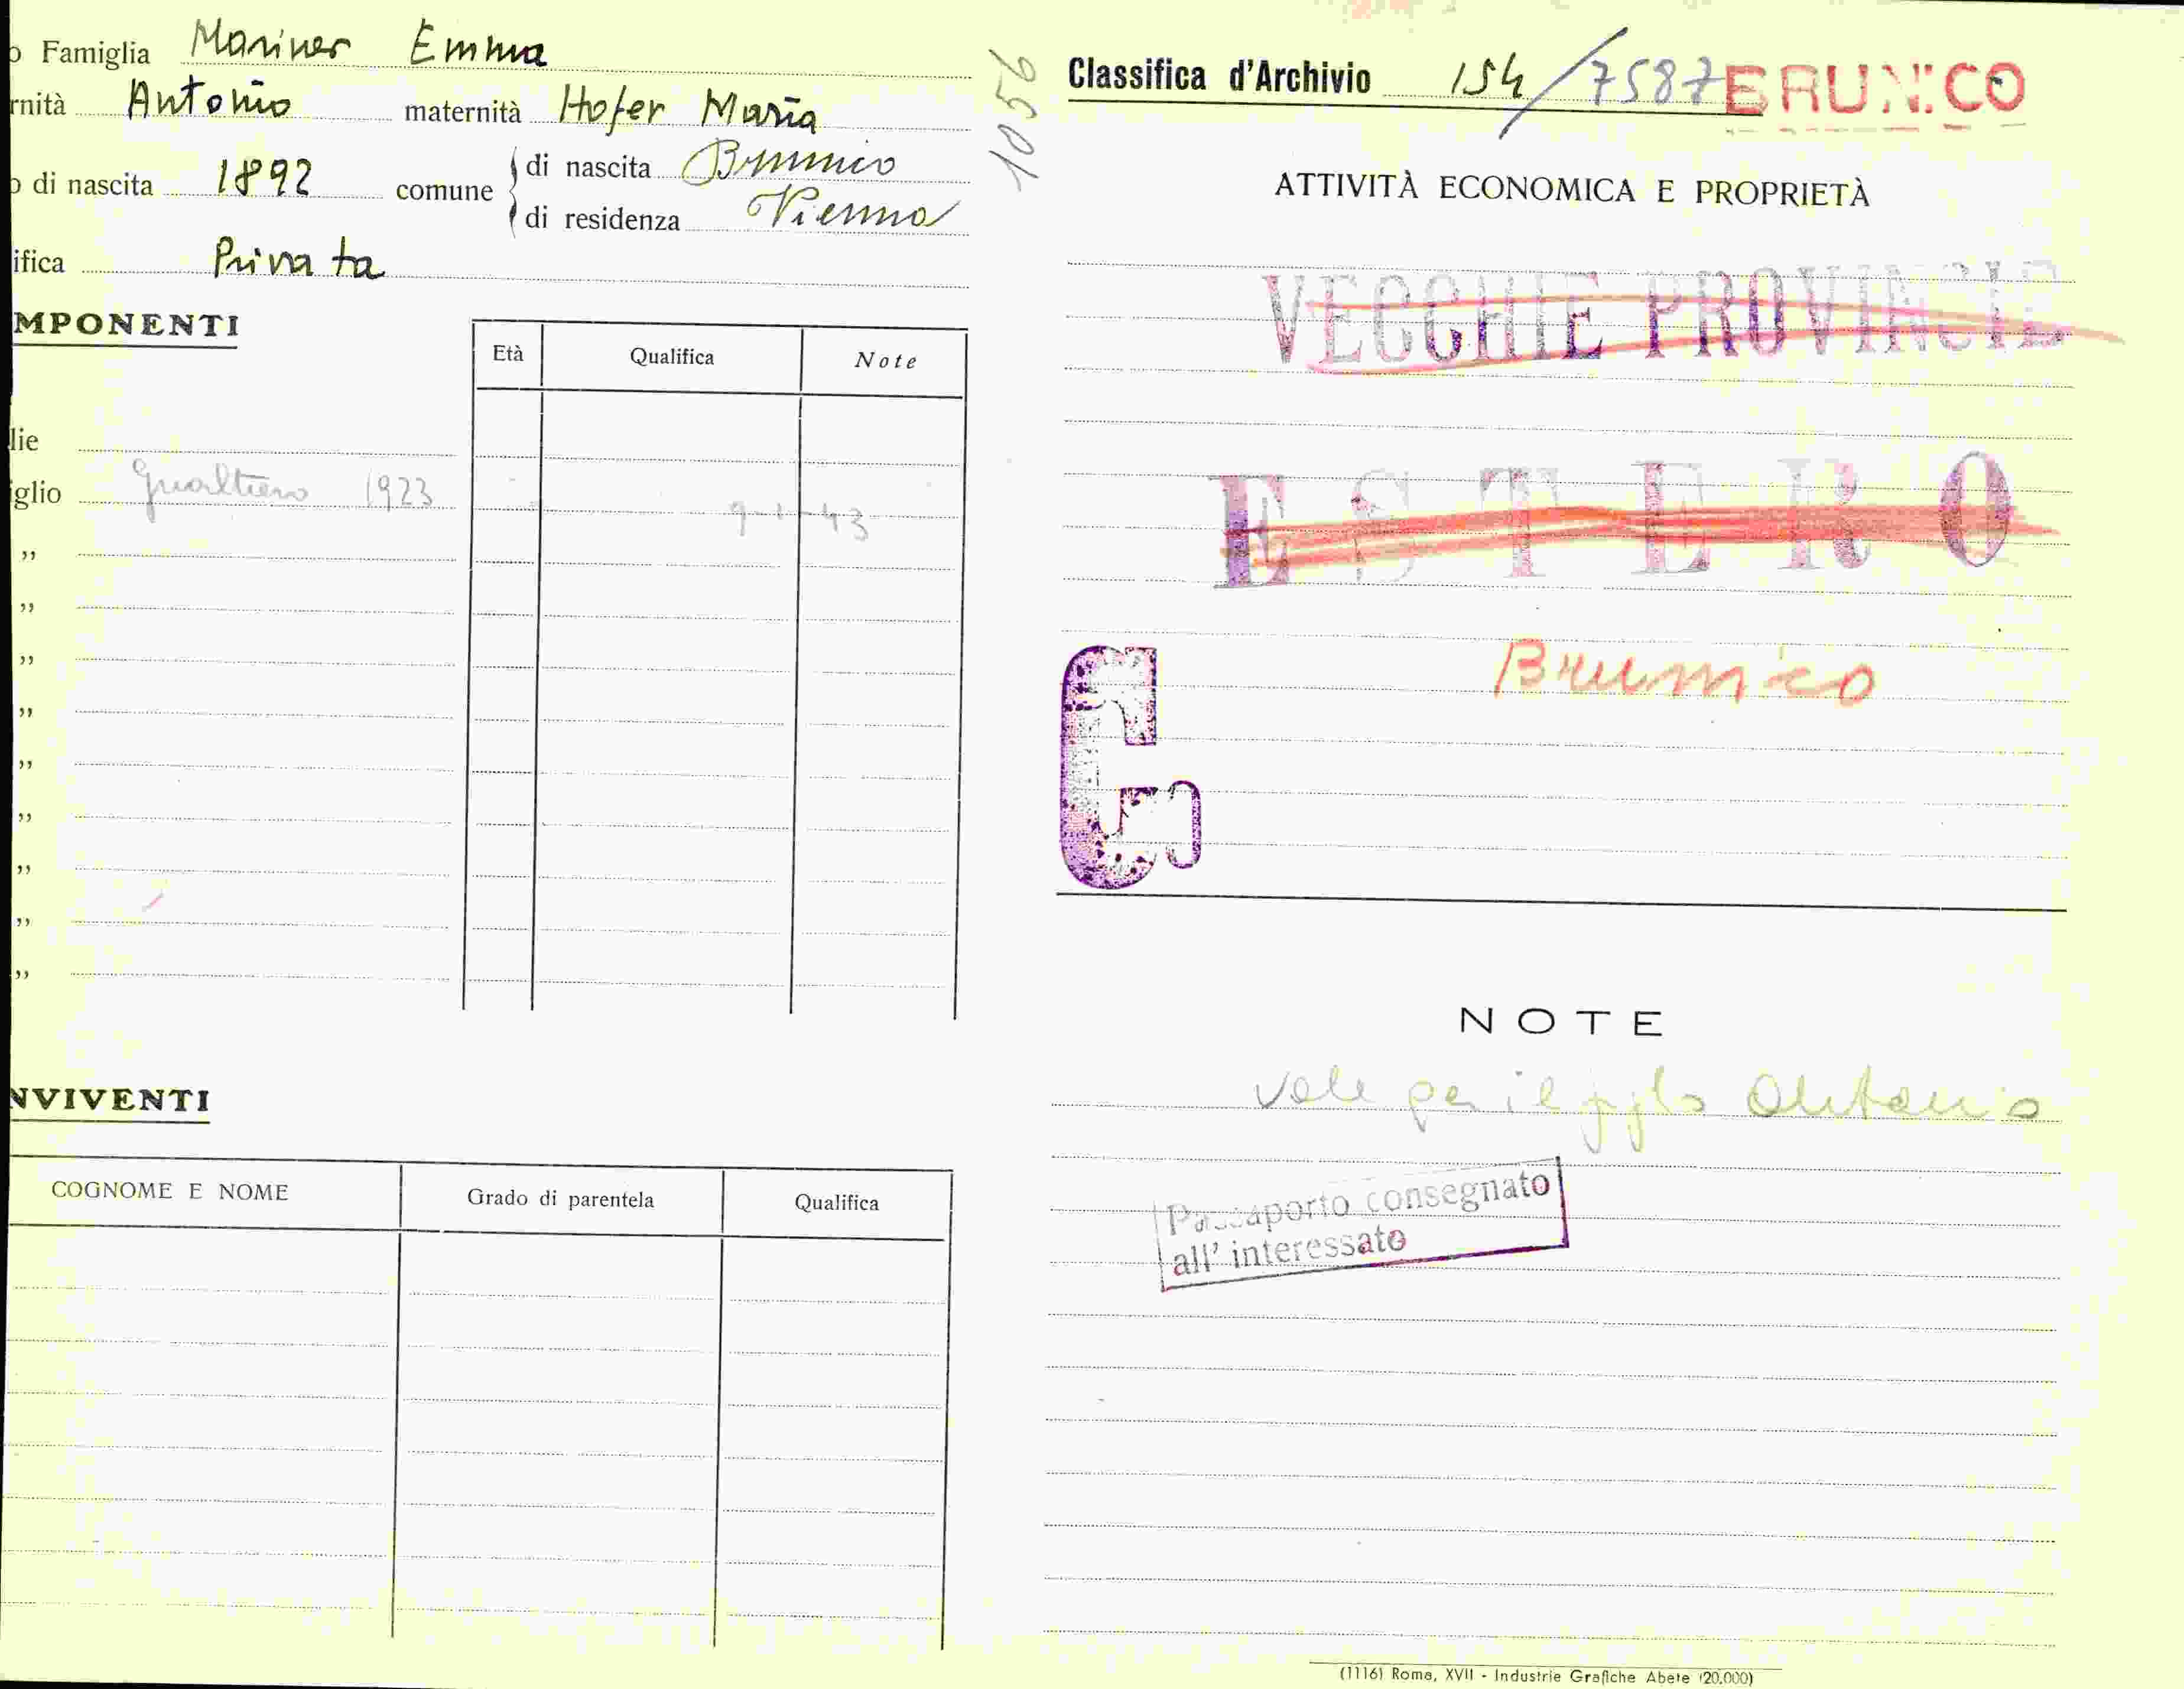 o Famiglia Mariner Emma
rnità Antonio maternità Hofer Maria
o di nascita 1892 comune di nascita Brunico
di residenza Vienna
ifica Privata
MPONENTI
Età Qualifica Note
lie
iglio Gualtiero 1923 9-1-43
"
"
"
"
"
"
"
"
"
NVIVENTI
COGNOME E NOME Grado di parentela Qualifica
1056
Classifica d'Archivio 154/7587 BRUNICO
ATTIVITÀ ECONOMICA E PROPRIETÀ
VECCHIE PROVINCIE
ESTERO
Brunico
C
NOTE
vale per il figlio Antonio
Passaporto consegnato
all' interessato
(1116) Roma, XVII - Industrie Grafiche Abete (20.000)